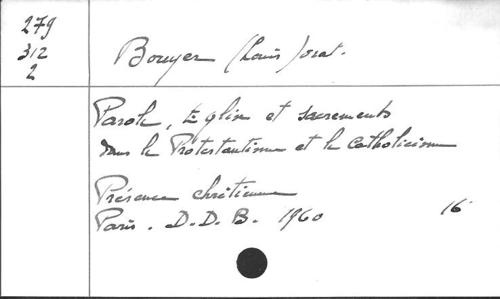 279
312
2
Bouyer (Louis) orat.
Parole, Eglise et sacrements
dans le Protestantisme et le Catholicisme
Présence chrétienne
Paris. D.D.B. 1960 16